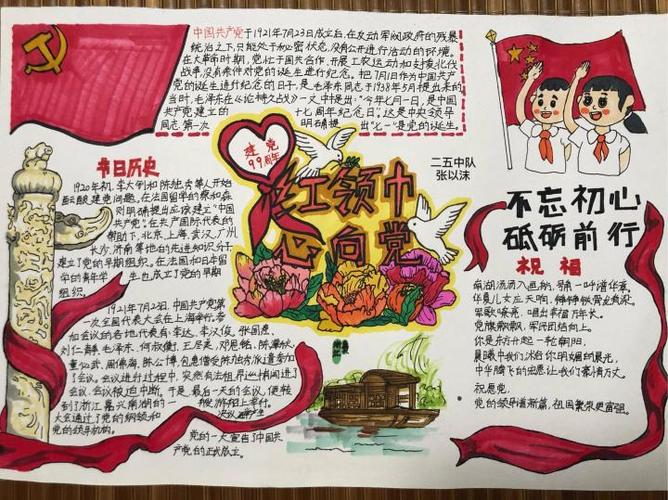 中国共产党于1921年7月23日成立后,在反动军阀政府的残暴
统治之下,只能处于秘密状态,没有公开进行活动的环境。
在大革命时期,党忙于国共合作、开展工农运动和支援北伐
战争,没有条件对党的诞生进行纪念。把7月1日作为中国共产
党的诞生进行纪念的日子,是毛泽东同志于1938年5月提出来的。
当时,毛泽东在《论持久战》一文中提出:“今年七月一日,是中国
共产党建立的十七周年纪念日”,这是中央领导
同志第一次明确提出“七一”是党的诞生
建党
99周年
红领巾
心向党
二五中队
张以沫
节日历史
1920年初,李大钊和陈独秀等人开始
酝酿建党问题。在法国留学的蔡和森
则明确提出应该建立“中国
共产党”。在共产国际代表的
帮助下,北京、上海、武汉、广州、
长沙、济南等地的先进知识分子
建立了党的早期组织。在法国和日本留
学的青年学生也成立了党的早期
组织。
1921年7月23日,中国共产党第
一次全国代表大会在上海举行。参
加会议的各地代表有:李达、李汉俊、张国焘、
刘仁静、毛泽东、何叔衡、王尽美、邓恩铭、陈潭秋、
董必武、周佛海、陈公博、包惠僧受陈独秀派遣参加
了会议。会议进行过程中,突然有法租界巡捕闯进了
会议,会议被迫中断。于是,最后一天的会议,便转
到了浙江嘉兴南湖的一游船上举行。
大会通过了党的纲领和决议
党的领导机构。
党的一大宣告了中国共
产党的正式成立。
不忘初心
砥砺前行
祝福
南湖汤汤入画舫,
华夏儿女立天响,
军歌嘹亮,唱出幸福万年长。
党旗飘飘,军民团结向上。
你是东方升起一轮朝阳,
晨曦中我们沐浴你明媚的晨光,
中华腾飞的思愿让我们豪情万丈。
祝愿党:
党的领导谱新篇,祖国繁荣更富强。